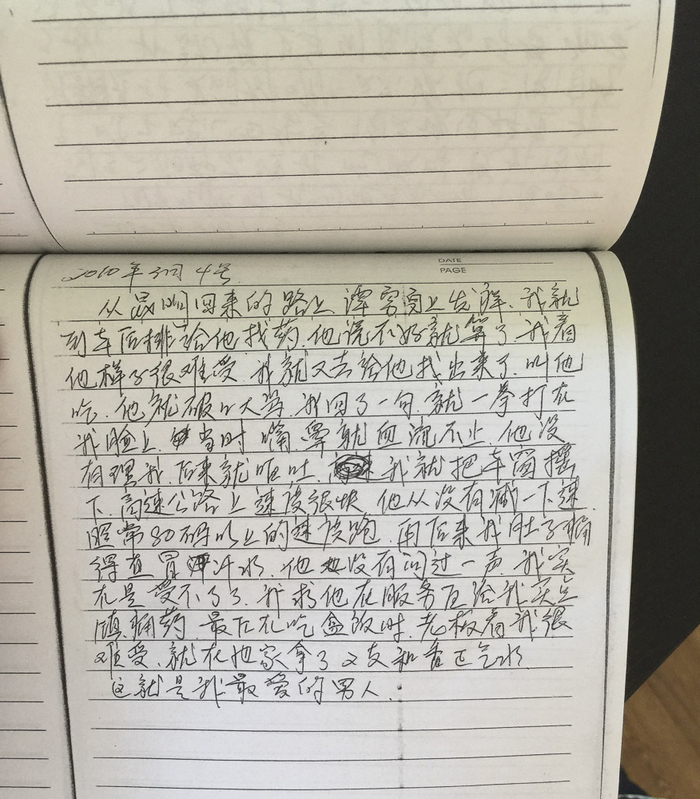 DATE
PAGE
2010年3月4号
从昆明回来的路上谭穷酒上发解.我就
到车后排给他找药.他说不好就算了.我看
他样子很难受.我就又去给他找出来了.叫他
吃.他就破口大骂.我回了一句.就一拳打在
我脸上.当时嘴鼻就血流不止.他没
有理我.后来就呕吐.我就把车窗摇
下.高速公路上速度很快他从没有减一下速
照常80码以上的速度跑.再后来我肚子痛
得直冒汗水.他也没有问过一声.我实
在是受不了了.我求他在服务区给我买点
镇痛药.最后在吃饭时.老板看我很
难受.就在他家拿了支和香正气水
这就是我最爱的男人.